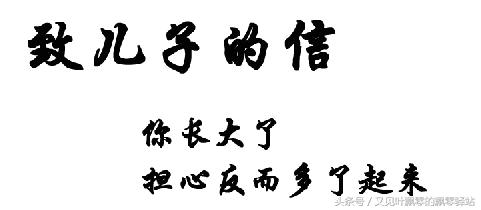 致儿子的信
你长大了
担心反而多了起来
头条号／又见叶飘零的飘零驿站